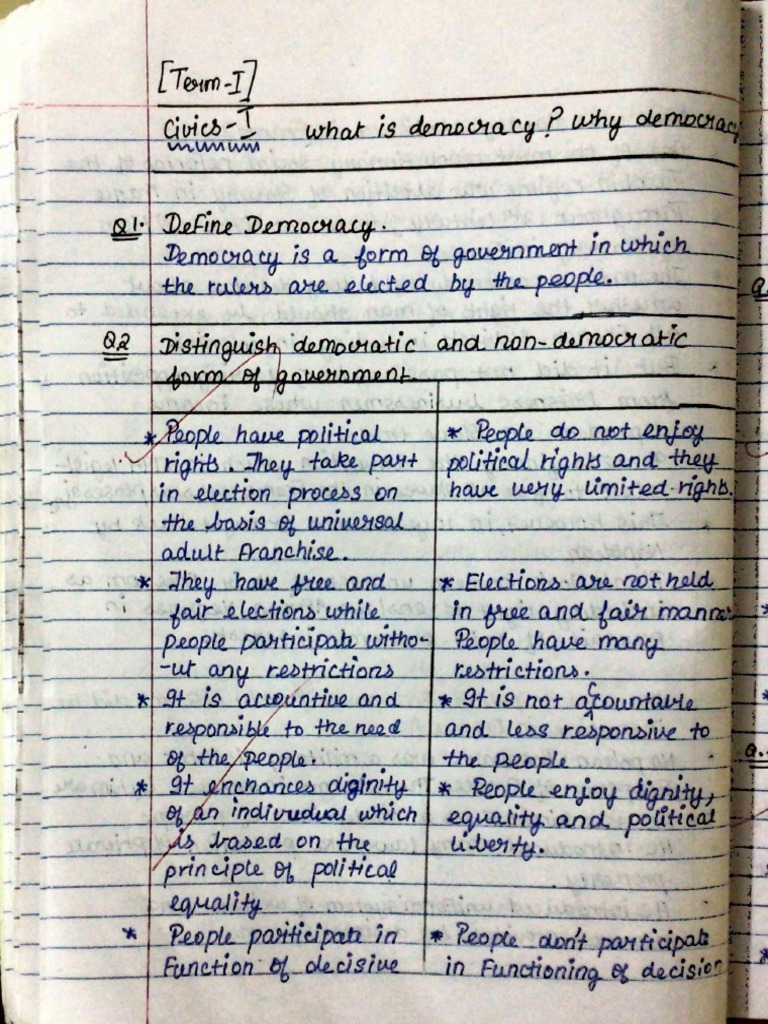 [Term-I]
Civics-I what is democracy? why democracy
Q1. Define Democracy.
Democracy is a form of government in which
the rulers are elected by the people.
Q2 Distinguish democratic and non-democratic
form of government.
* People have political
rights. They take part
in election process on
the basis of universal
adult franchise.
* They have free and
fair elections while
people participate witho-
-ut any restrictions
* It is accountive and
responsible to the need
of the people.
* It enchances diginity
of an individual which
is based on the
principle of political
equality
* People participate in
Function of decisive
* People do not enjoy
political rights and they
have very limited rights.
* Elections are not held
in free and fair manner
People have many
restrictions.
* It is not accountable
and less responsive to
the people
* People enjoy dignity,
equality and political
liberty.
* People don't participate
in Functioning of decision